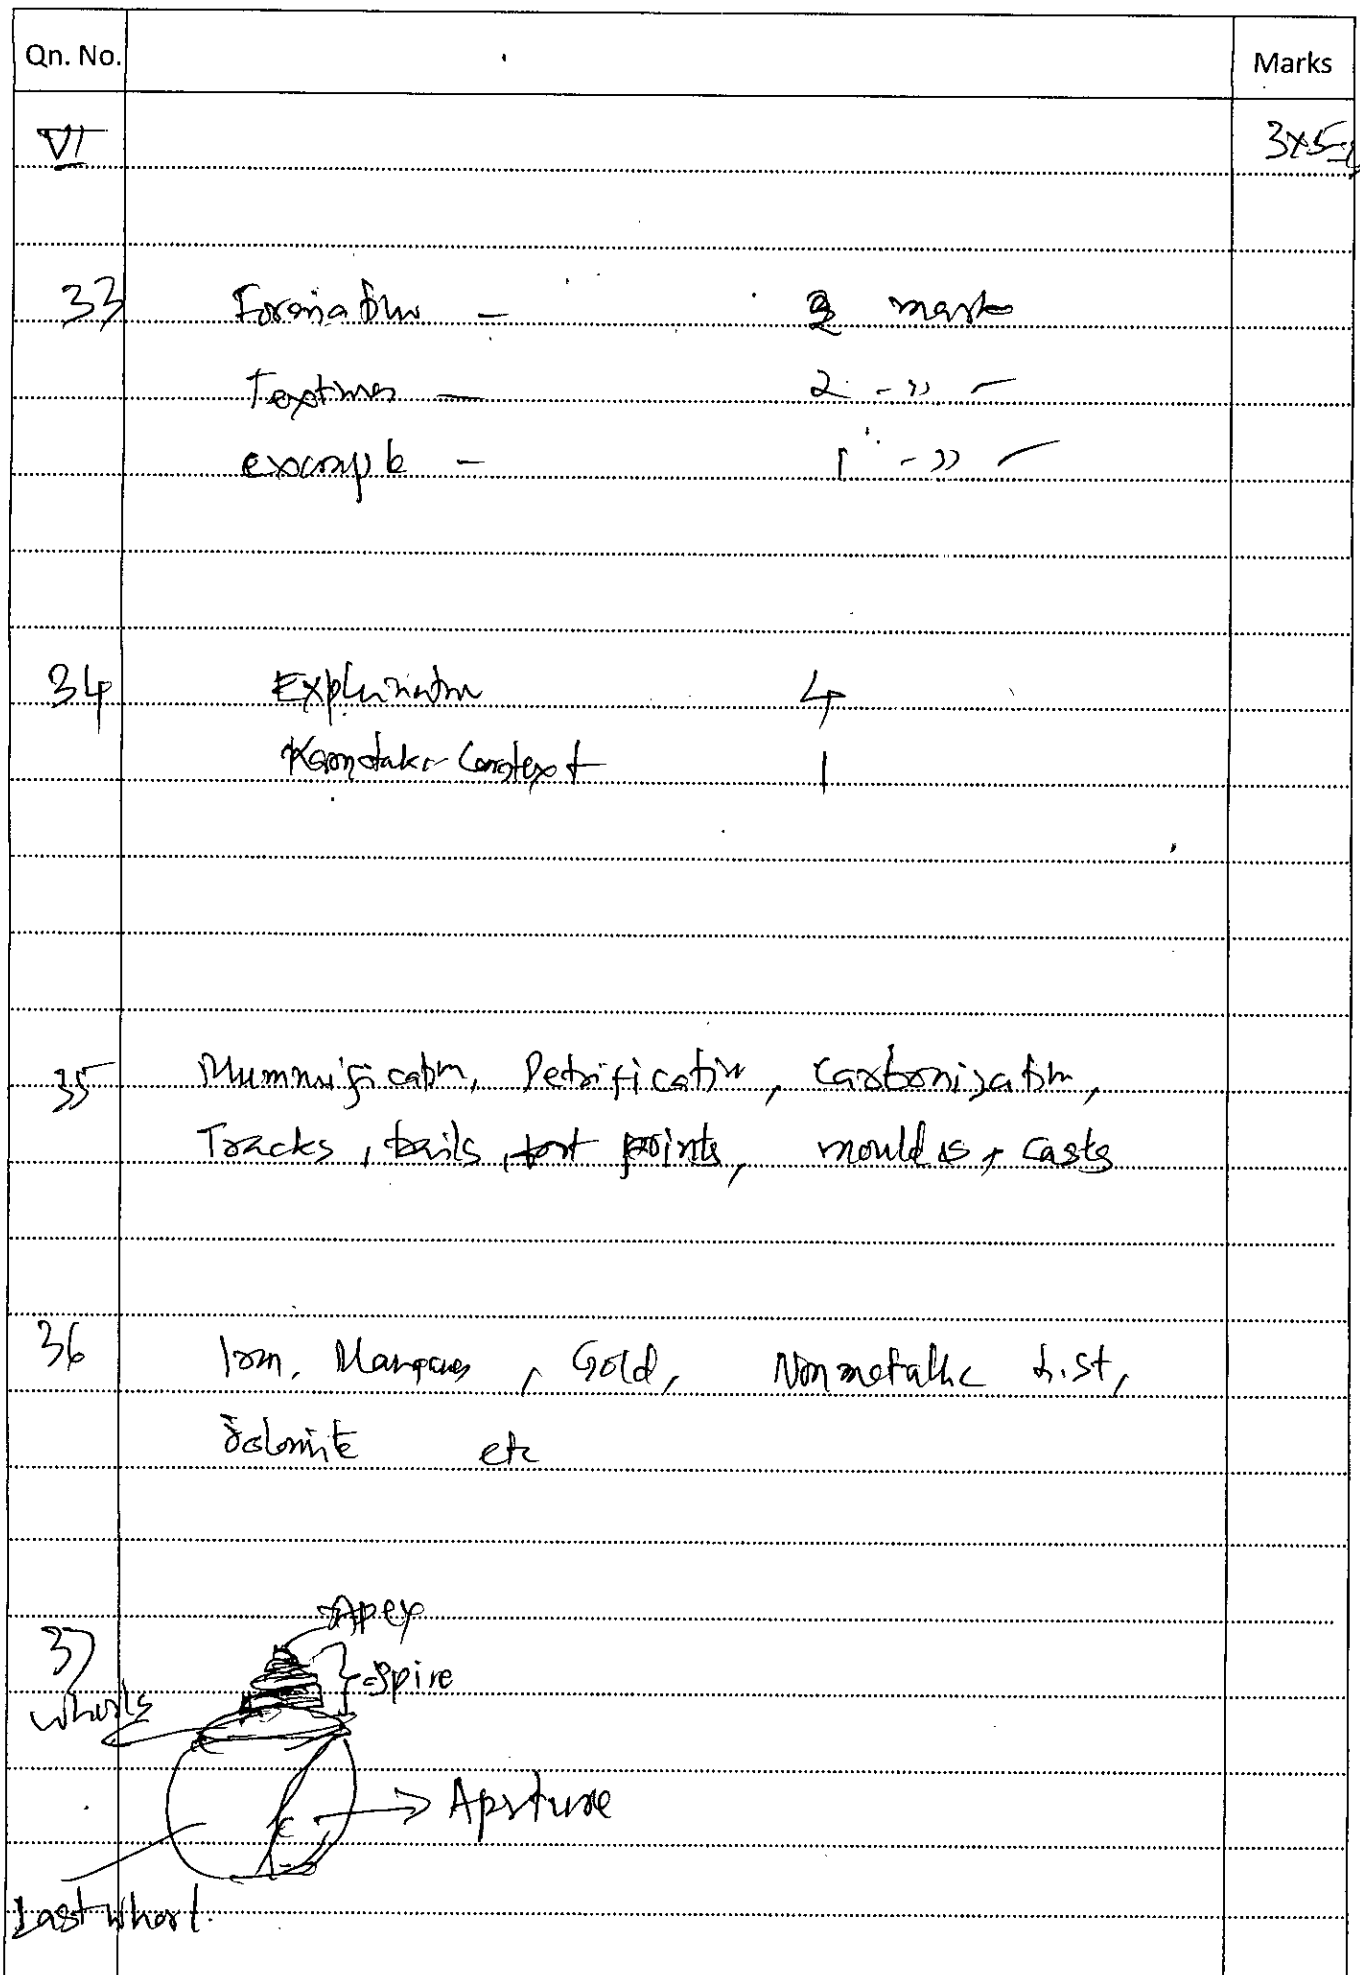 Qn. No. Marks
VI 3x5=
33 Formation - 2 marks
Textures - 2 -"-
example - 1 -"-
34 Explanation 4
Karnataka Context 1
35 Mummification, Petrification, Carbonization,
Tracks, trails, foot prints, moulds + casts
36 Iron, Manganese, Gold, Nonmetallic L.St,
Dolomite etc
37 Apex
Spire
whorls
Aprture
Last whorl.